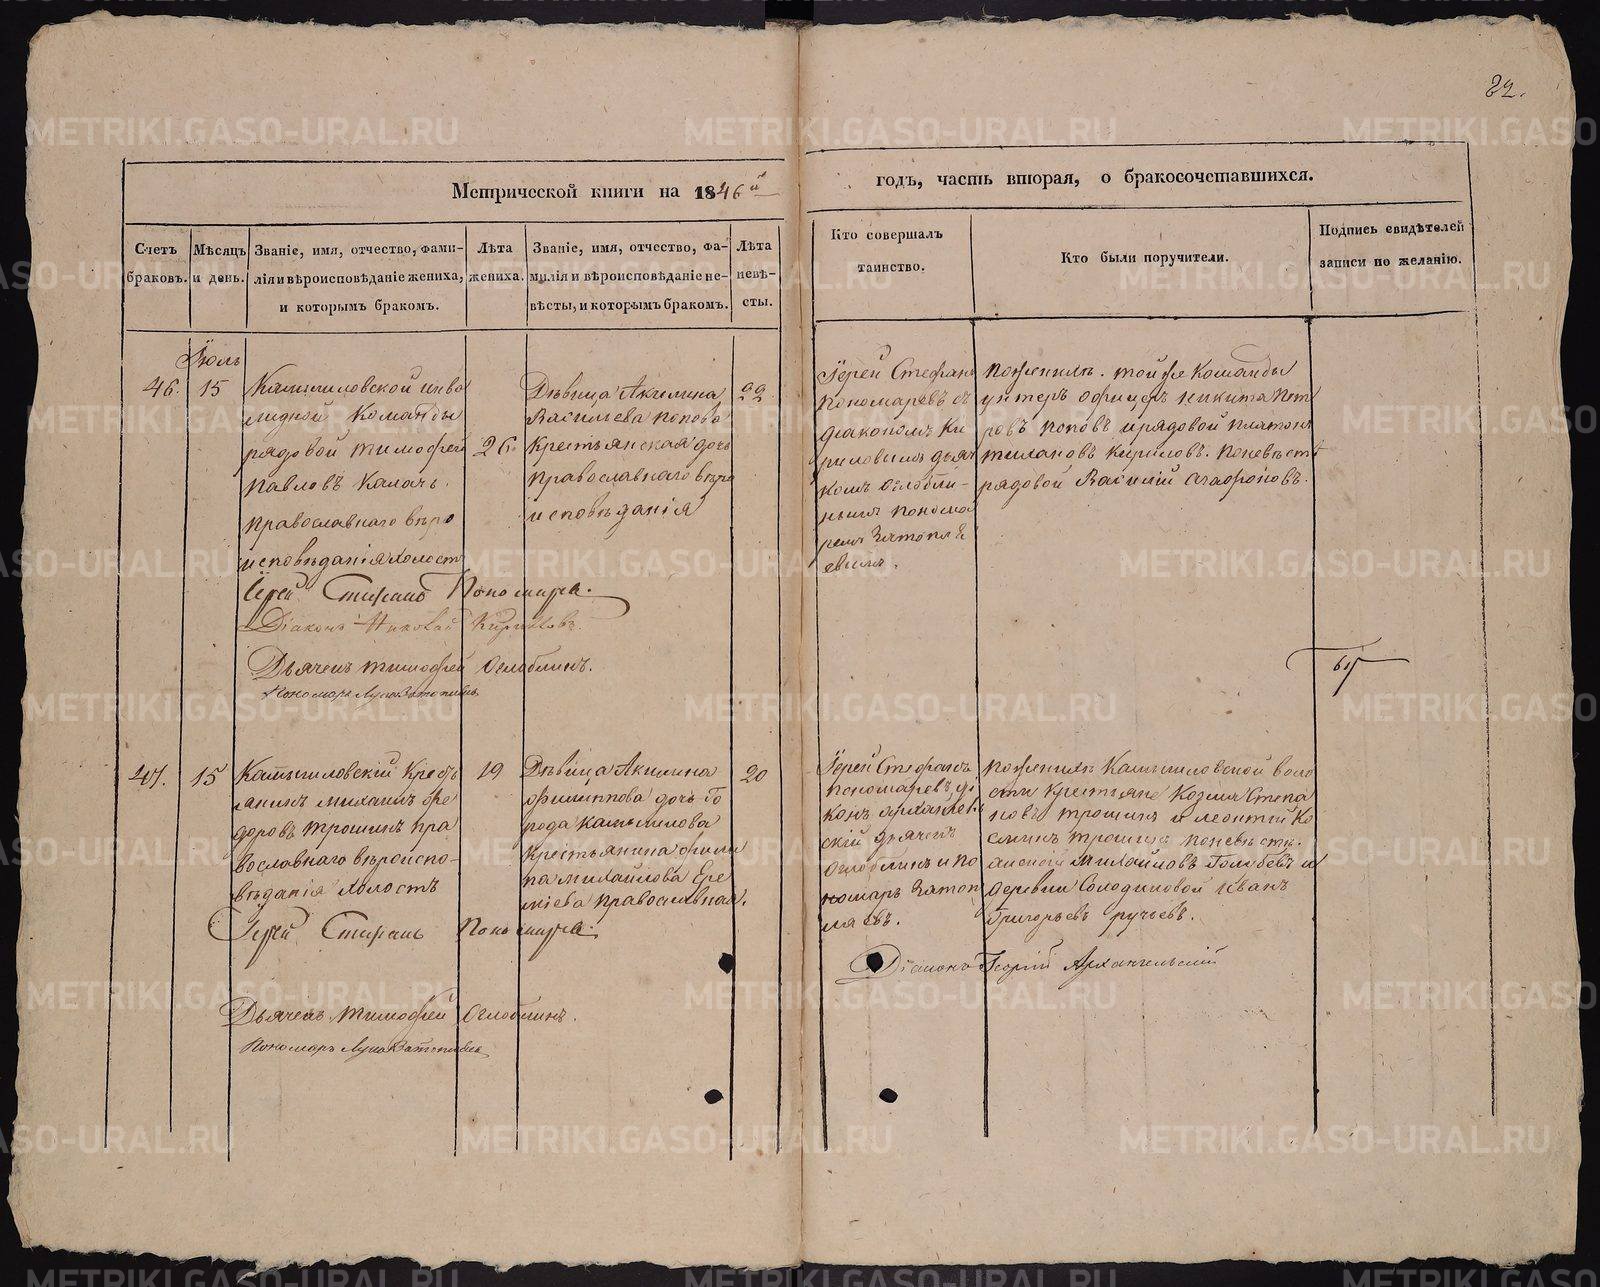 82.
Метрической книги на 1846й
годъ, часть вторая, о бракосочетавшихся.
Счетъ
браковъ.
Мѣсяцъ
и день.
Званіе, имя, отчество, фами-
лія и вѣроисповѣданіе жениха,
и которымъ бракомъ.
Лѣта
жениха.
Званіе, имя, отчество, фа-
милія и вѣроисповѣданіе не-
вѣсты, и которымъ бракомъ.
Лѣта
невѣ-
сты.
Кто совершалъ
таинство.
Кто были поручители.
Подпись свидѣтелей
записи по желанію.
Іюль
46.
15
Камышловской инва
лидной Команды
рядовой Тимофей
Павловъ Калачъ.
православнаго вѣро
исповѣданія холостъ
26.
Дѣвица Акилина
Васильева Попова
Крестьянская дочь
православнаго вѣро
исповѣданія
22
Іерей Стефанъ
Пономаревъ съ
діакономъ Ки
риловымъ дьяч
комъ Оглобли-
нымъ понома
ремъ
Поженихѣ. той же Команды
унтеръ офицеръ Никита Пет
ровъ Поповъ и рядовой Платонъ
Кириловъ. Поневѣстѣ
рядовой Василій Агафоновъ.
Іерей Стефанъ Пономарев.
Діаконъ Николай Кириловъ.
Дьячекъ Тимофей Оглоблинъ.
Пономарь Лука
47.
15
Камышловскій Кресть
янинъ Михаилъ Фе
доровъ Трошинъ пра
вославнаго вѣроиспо-
вѣданія холостъ
19
Дѣвица Акилина
Филиппова дочь го
рода Камышлова
Крестьянина Фили
па Михайлова Ере
мѣева православная.
20
Іерей Стефанъ
Пономаревъ, діа
конъ Архангель
скій дьячекъ
Оглоблинъ и по
номарь
Поженихѣ Камышловской воло
сти крестьяне Козма Степа
новъ Трошинъ и Леонтій Ко
сминъ Трошинъ поневѣстѣ.
Михайловъ Голубевъ и
деревни Солодиловой Иванъ
Григорьевъ Ручьевъ.
Іерей Стефанъ Пономарев.
Діаконъ Георгій Архангельскій
Дьячекъ Тимофей Оглоблинъ.
Пономарь Лука
METRIKI.GASO-URAL.RU